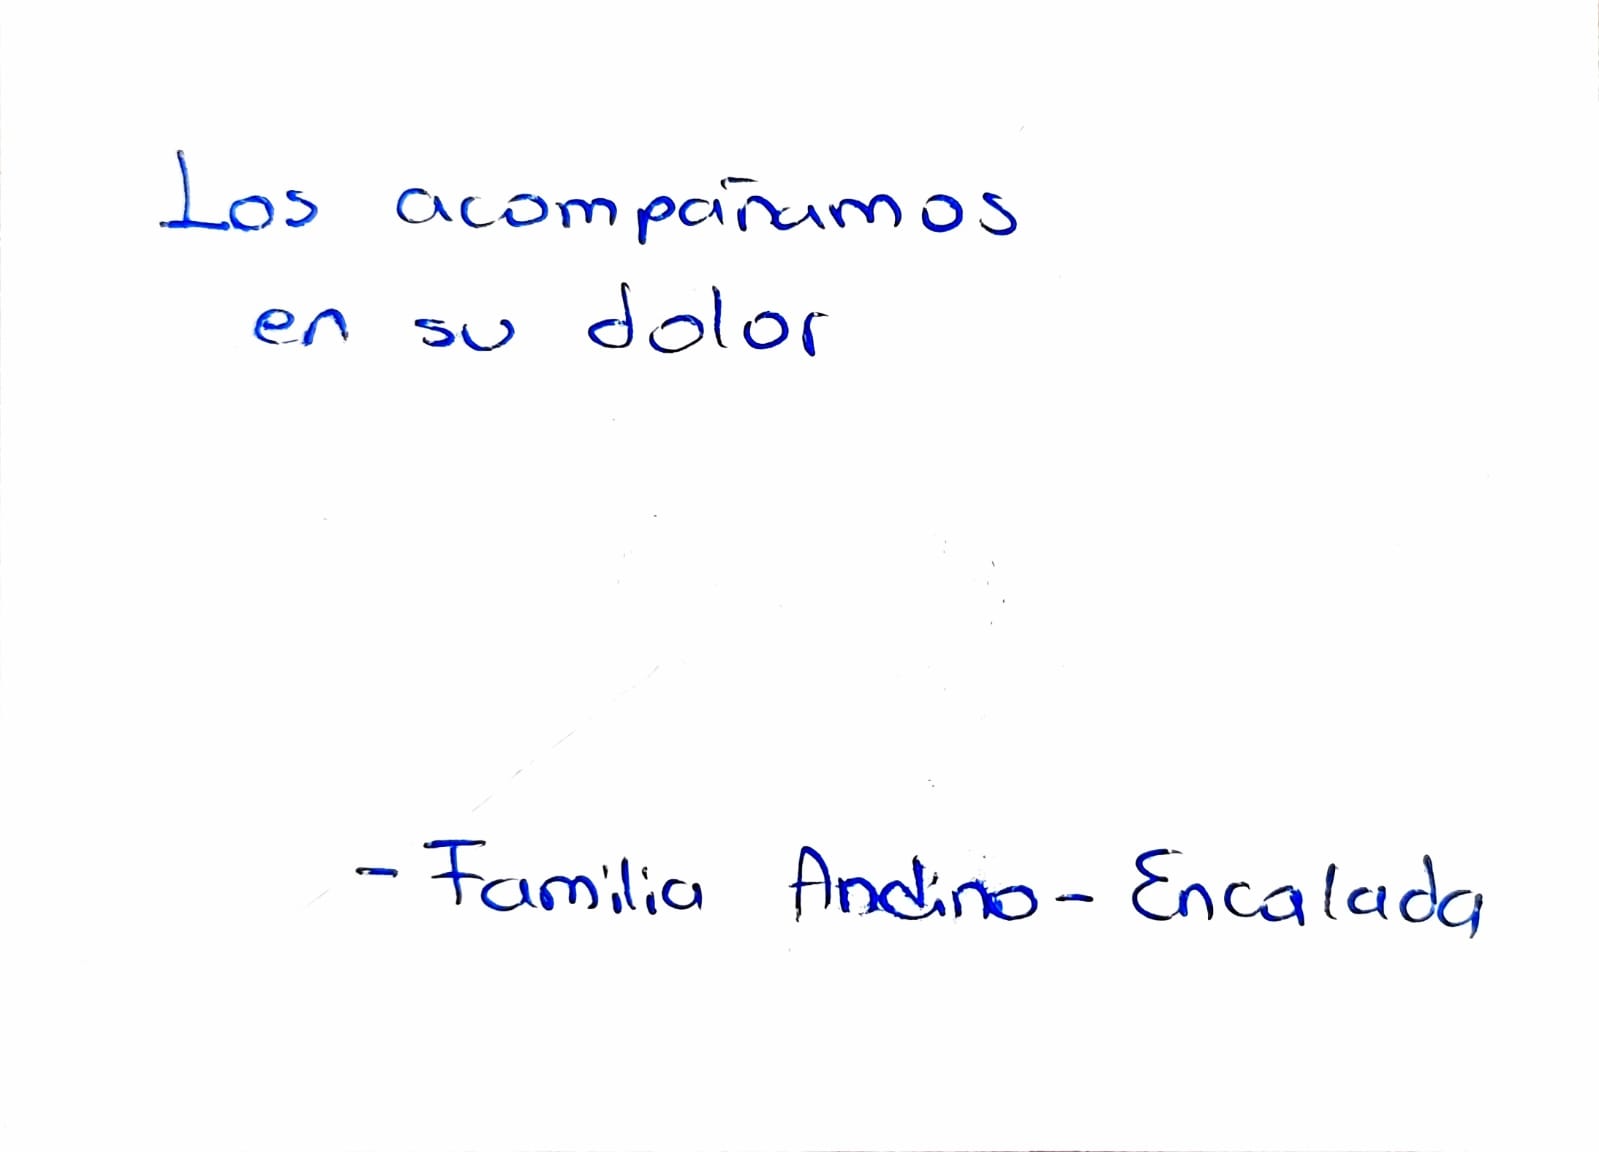 Los acompañamos
en su dolor
- Familia Andino - Encalada